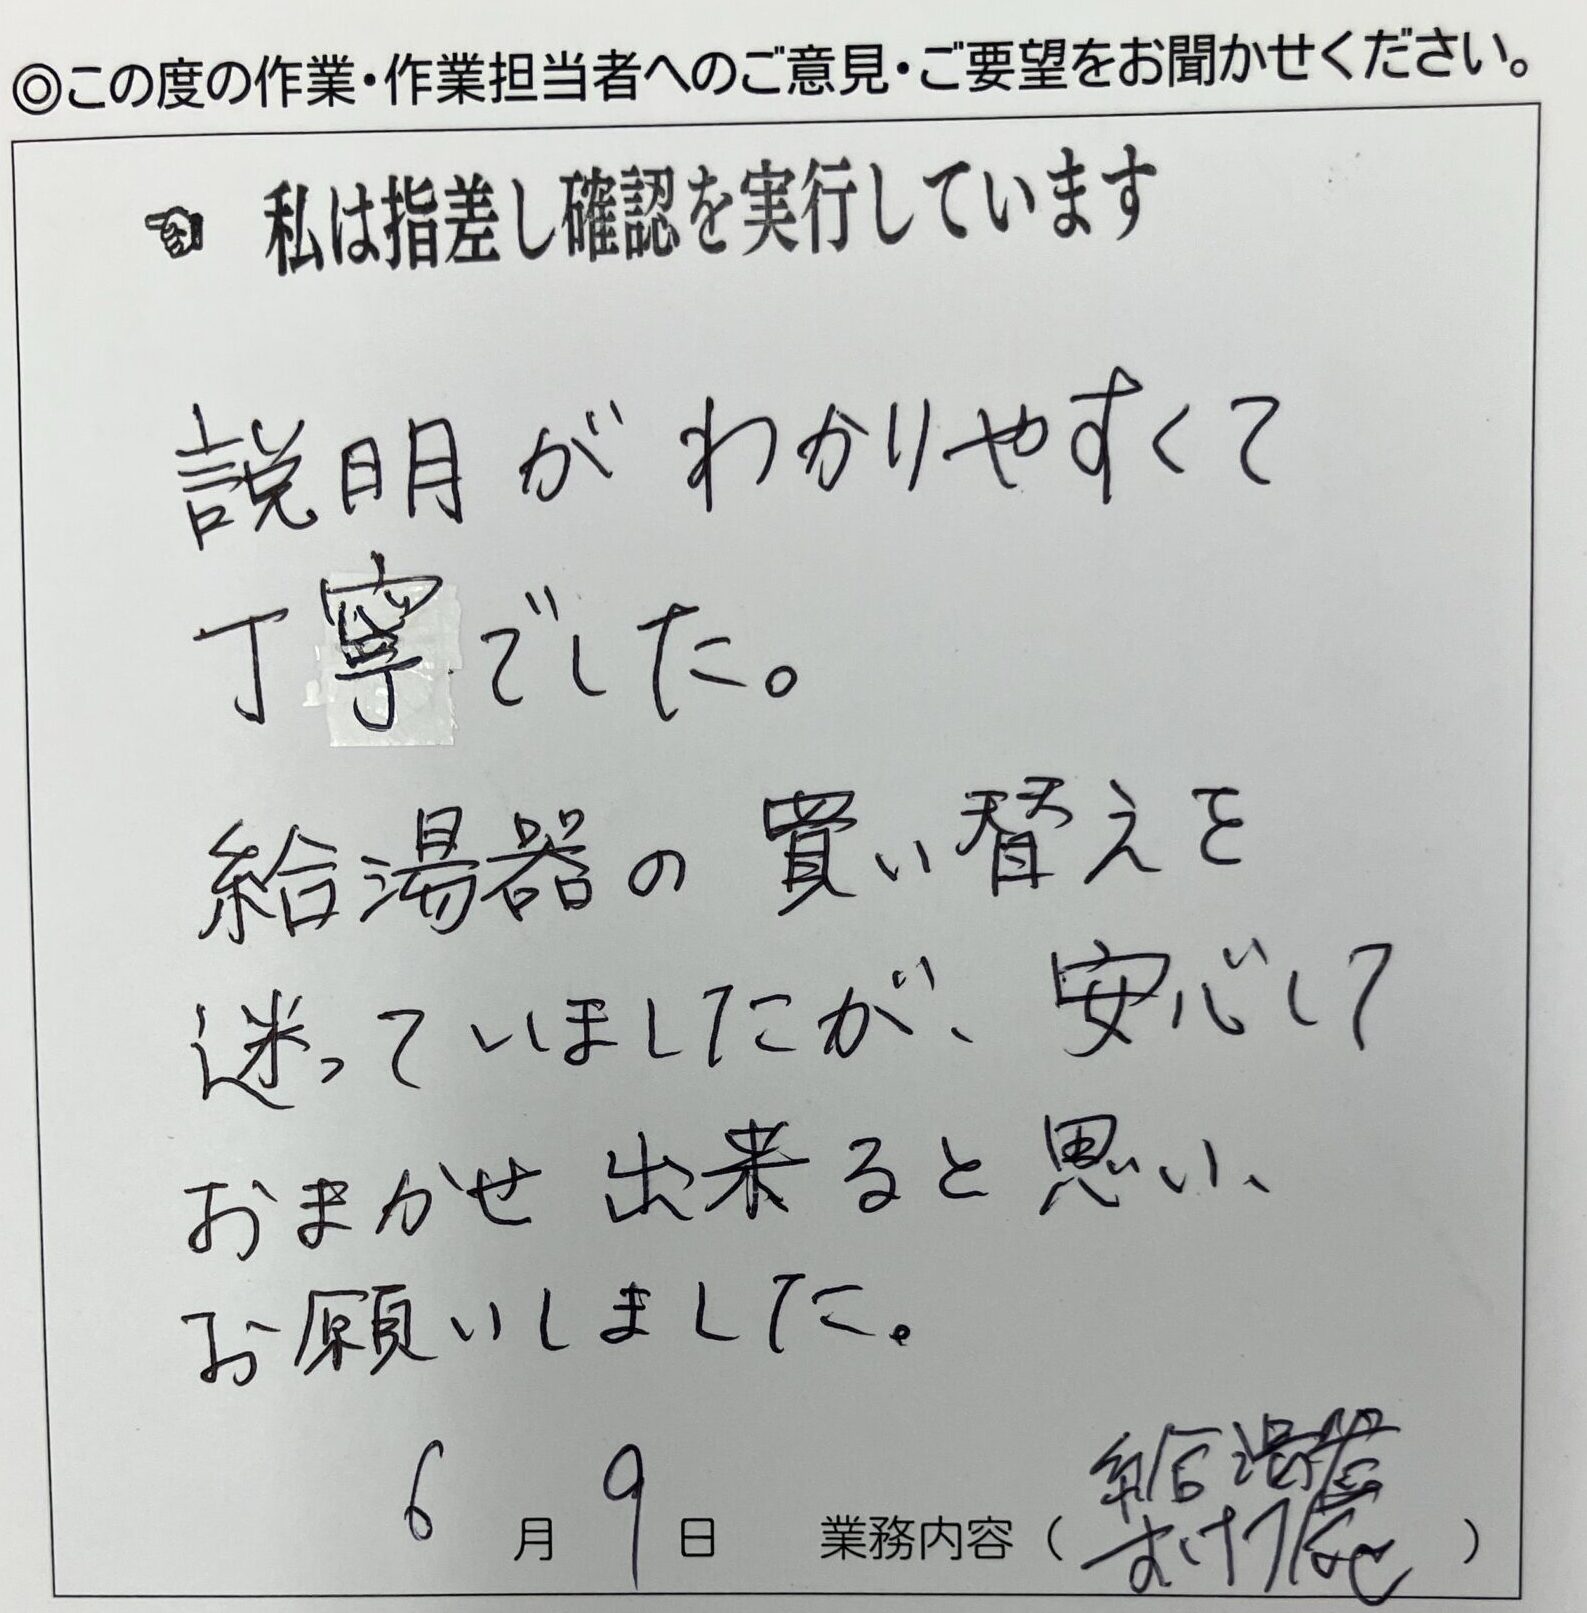 ◎この度の作業・作業担当者へのご意見・ご要望をお聞かせください。
☜ 私は指差し確認を実行しています
説明がわかりやすくて
丁寧でした。
給湯器の買い替えを
迷っていましたが、安心して
おまかせ出来ると思い、
お願いしました。
6月9日 業務内容(給湯器)